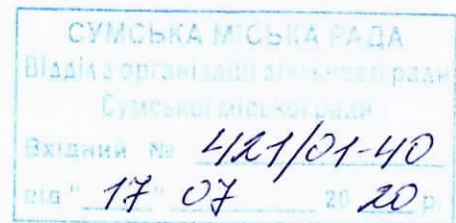 СУМСЬКА МІСЬКА РАДА
Відділ з організації діяльності ради
Сумської міської ради
Вхідний № 421/01-40
від " 17 " 07 20 20 р.